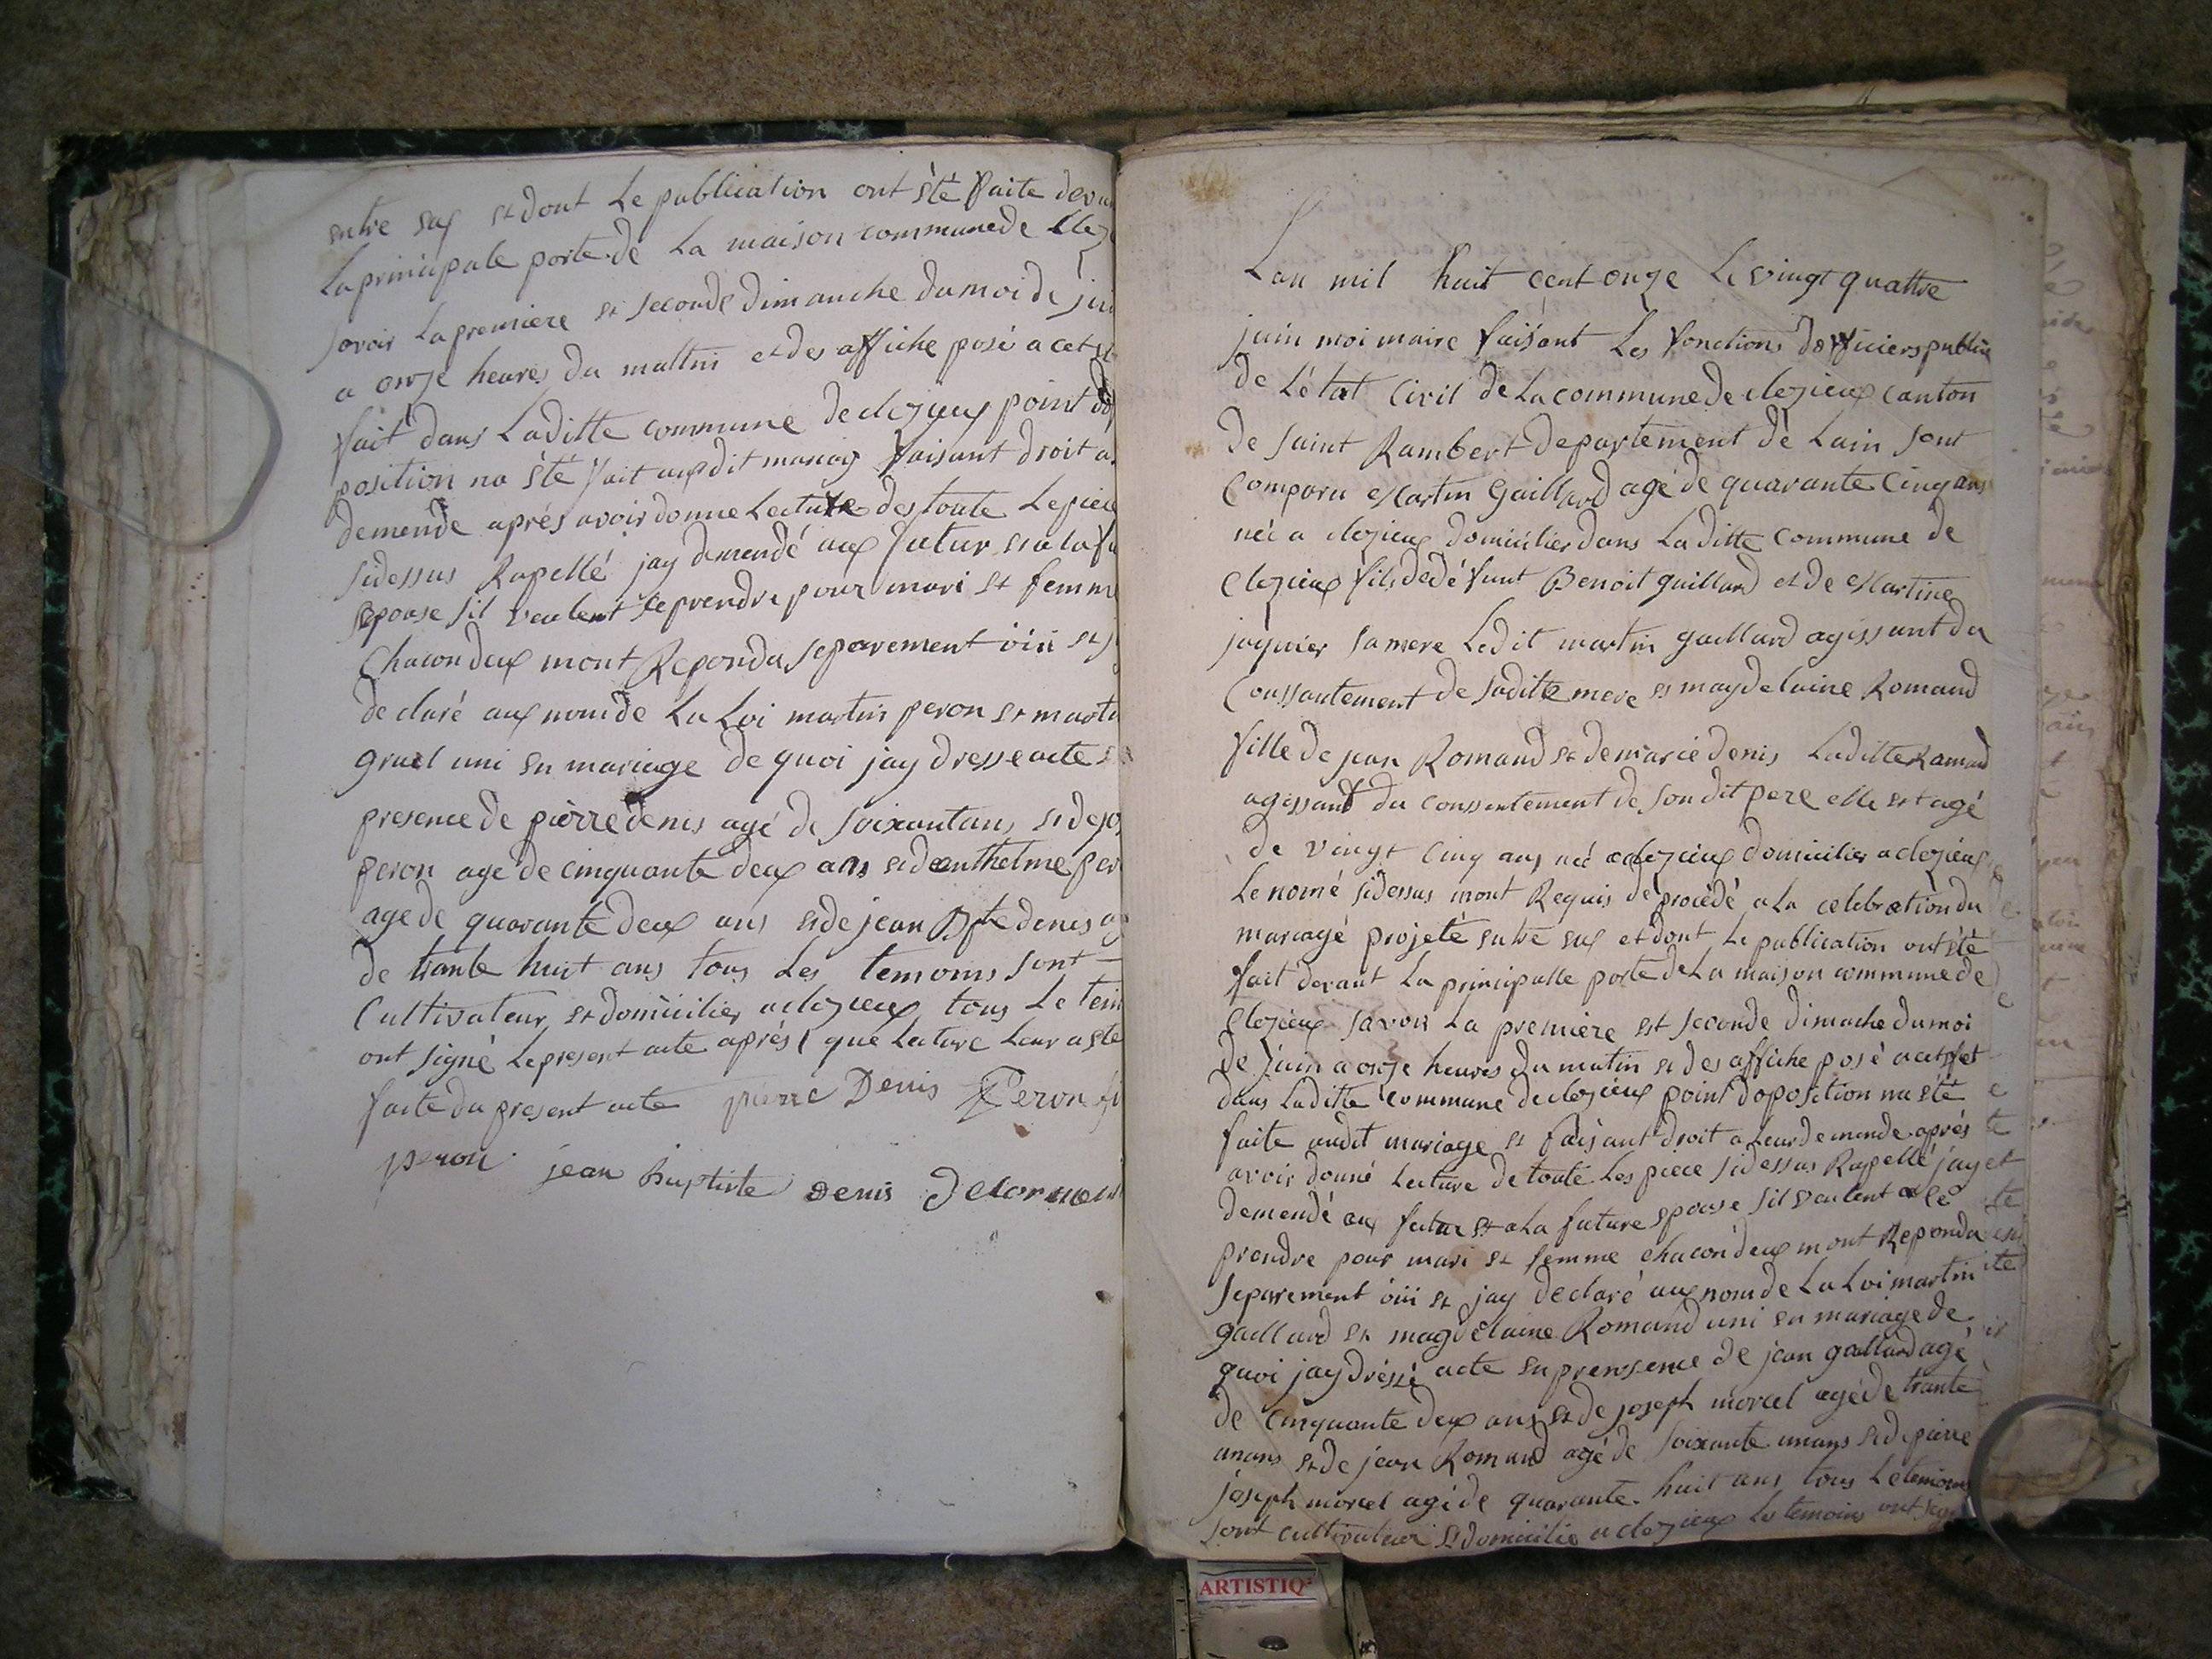 entre eux et dont Le publication ont été faite deva
La principale porte de La maison commune de Clez
savoir La premiere et seconde dimanche du moi de jui
a onze heures du mattin et des affiche posé a cet
fait dans Laditte commune de clezieux point do
position na été fait audit mariag faisant droit a
demende aprés avoir donne Lecture des toute Le piece
sidessus Rapellé jay demendé aux futur et a la fu
Epouse sil veulent se prendre pour mari et femme
chacon deux mont Repondu separement oüi et j
declaré aux nom de La Loi martin peron et marti
gruel uni en mariage de quoi jay dresse acte e
presence de pierre denis agé de soixant ans et de jos
peron age de cinquante deux ans et de anthelme per
age de quarante deux ans et de jean Bpte denis ag
de trante huit ans tous Les temoins sont
Cultivateur et domicilier a clezieux tous Le tem
ont signé Le present acte aprés que Lecture Leur a ete
faite du present acte pierre Denis Peron
peron jean Baptiste denis Delorme
Lan mil huit cent onze Le vingt quattre
juin moi maire faisant Les fonctions dofficiers public
de Létat Civil de La commune de clezieux canton
de saint Rambert departement de Lain sont
comparu Martin Gaillard agé de quarante Cinq ans
néé a clezieux domicilier dans Laditte commune de
clezieux fils dedéfunt Benoit gaillard et de Martine
jaquier sa mere Ledit martin gaillard agissant du
Conssantement de saditte mere et magdelaine Romand
fille de jean Romand et de marie denis Laditte Romand
agissant du conssentement de son dit pere elle est agé
de vingt cinq ans néé a clezieux domicilier a clezieux
Le nomé sidessus mont Requis de procédé a La celebration du
mariagé projeté entre eux et dont Le publication ont été
fait devant La principalle porte de La maison commune de
Clezieux savoir La premiére et seconde dimache du moi
de juin a onze heures du matin et des affiche posé a cet efet
dans Laditte commune de clezieux point doposition na été
faite audit mariage et faisant droit a Leur demende aprés
avoir donné Lecture de toute Les piece sidessus Rapellé jay
demendé au futur et a La future epouse sil veulent se
prendre pour mari et femme chacon deux mont Repondu
separement oüi et jay declaré aux nom de La Loi martin
gaillard et magdelaine Romand uni en mariage de
quoi jay dréssé acte en prensence de jean gaillard agé
de cinquante deux ans et de joseph morcel agé de trante
unans et de jean Romand agé de soixante unans et de pierre
joseph morcel agé de quarante huit ans tous Le temoins
sont cultivateur et domicilie a clezieux Les temoins ont signé
ARTISTIQ